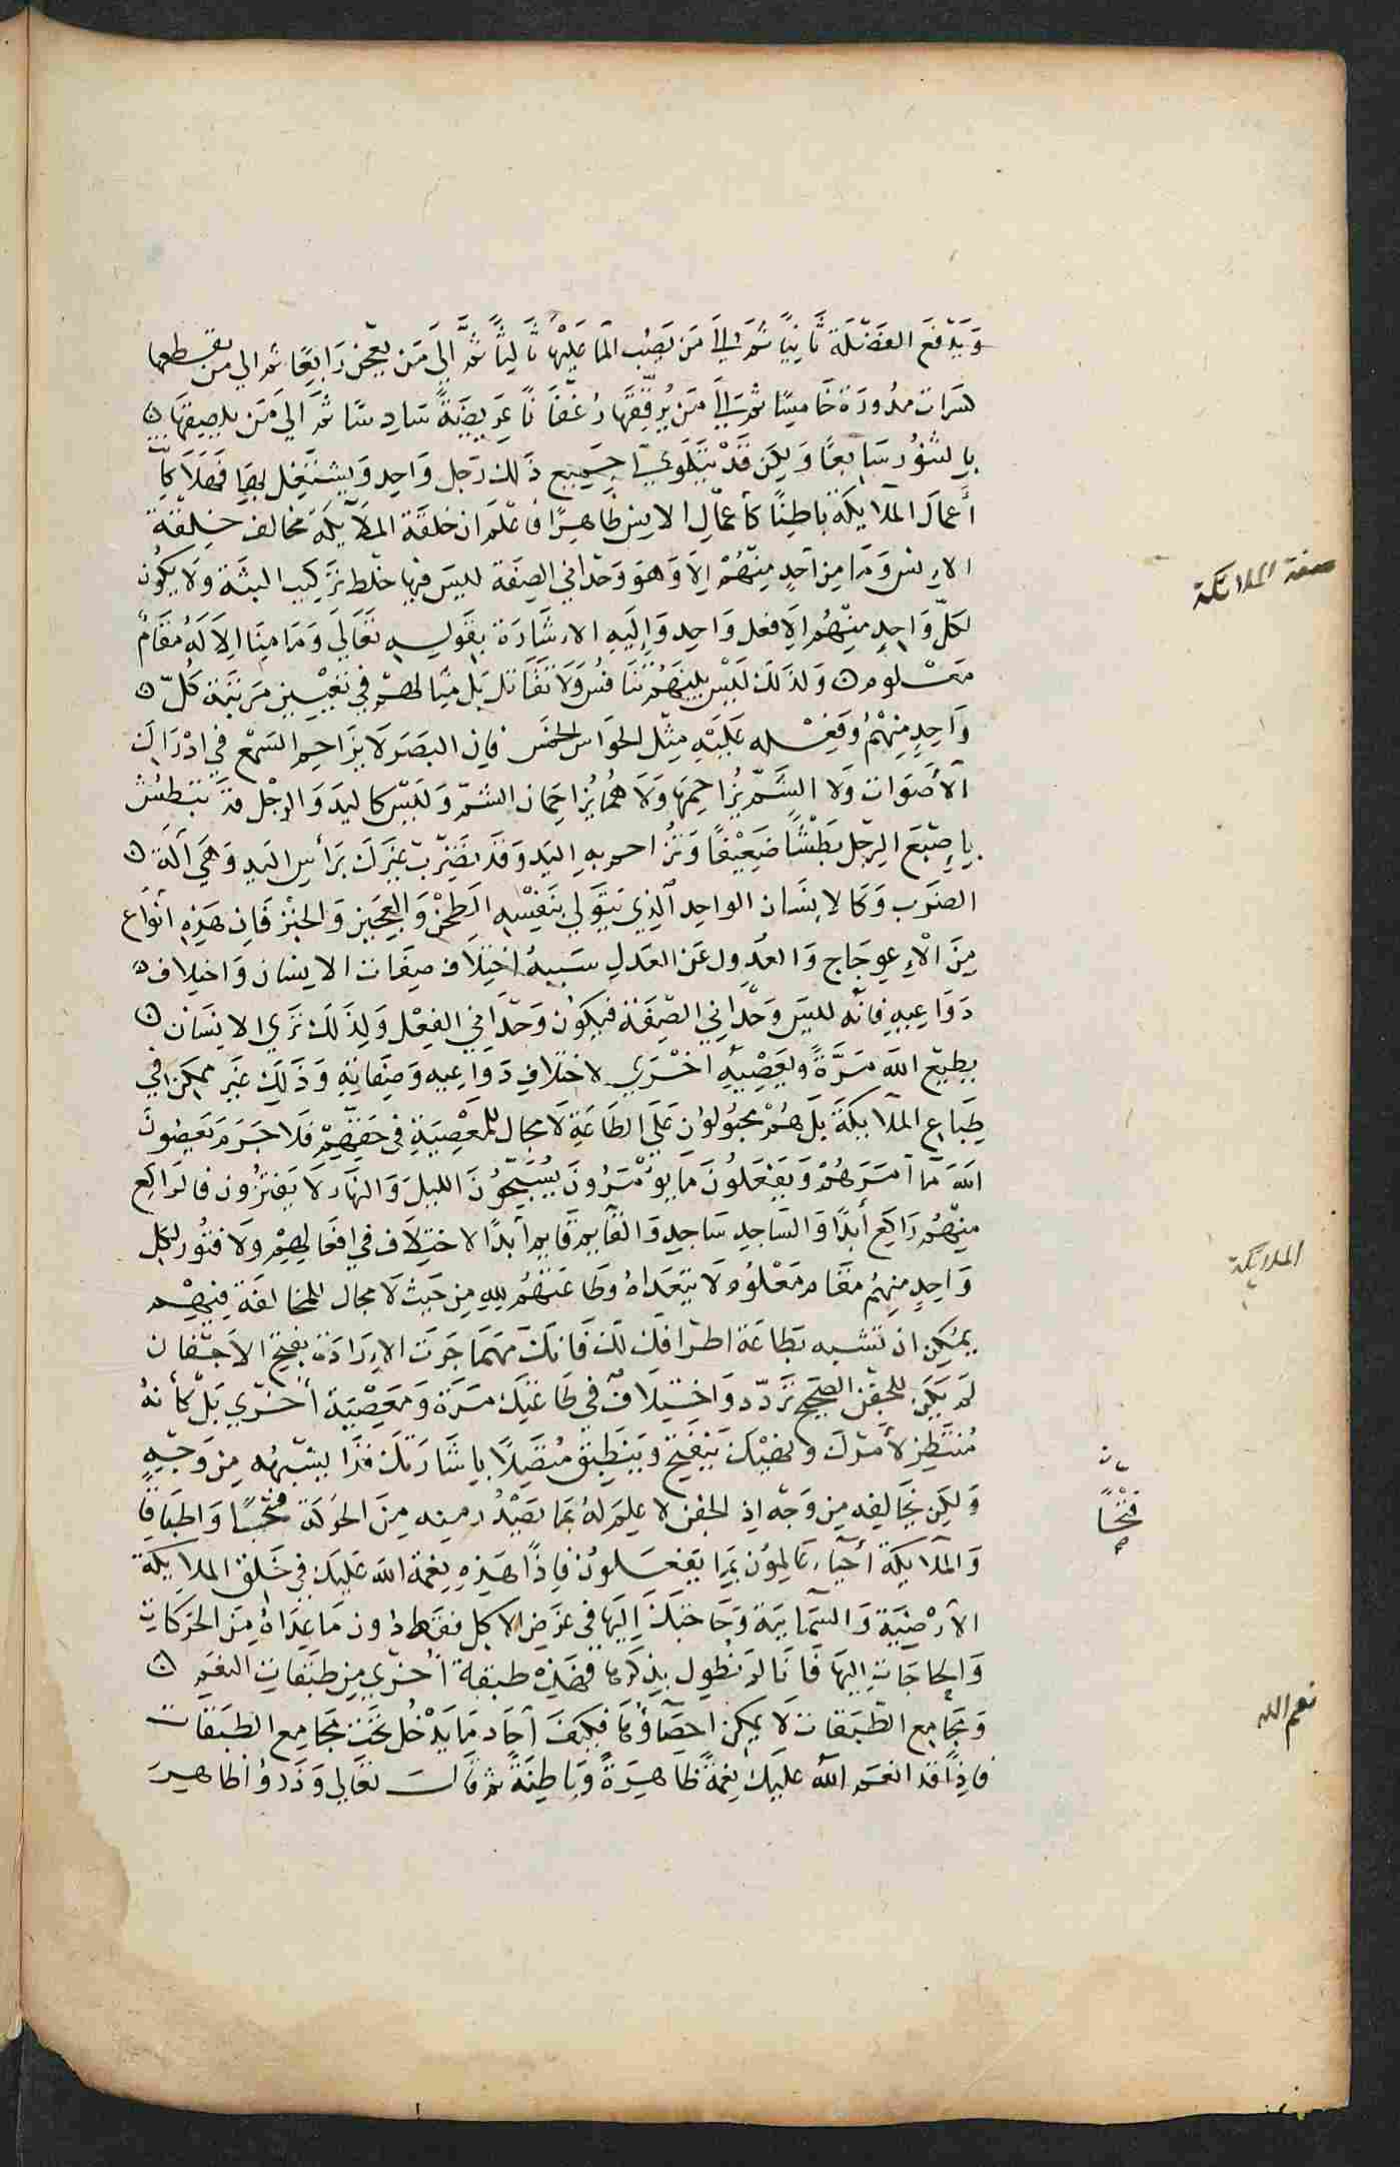 وَيَدْفَعُ الفَضْلَة ثَانِيًا ثُمَّ اِلَى مَن يَصُبُ الْمَا عَلَيْهَا ثَالِثًا ثُمَّ اِلَى مَن يعْجِن رَابِعًا ثم الى من يقطعها
كرات مُدَورَة خَامِسًا ثم اِلَى مَن يُرَقِّقهَا رُغْفَانًا عَرِيضَةً سَادِسًا ثُمَّ الَى مَن يلصِقهَا
بالتنُور سَابِعًا وَلكِن قَدْ يَتَوَلى جَمِيع ذَلك رَجل وَاحِد وَيشتغِل بِهَا فَهَلا كَانَ
أَعْمَالَ المَلايكَة بَاطِنًا كَأَعْمَالِ الانِس ظَاهِرًا فاعْلَم ان خلقَة المَلايكَة مخالف خِلقَة
الاِنس وَمَا مِن اَحَدٍ مِنهُمْ اِلا وَهو وَحْدَاني الصِفَة لَيسَ فيها خلْط تَرْكيب البتَّة وَلا يكُون
لكل وَاحِدٍ مِنْهُم اِلا فعل وَاحِد وَاِليهِ الاِشَارَة بقَوله تعَالى وَمَا مِنَا اِلا لَهُ مُقَامٌ
مَعْلوم وَلذلكَ لَيْسَ بينَهُمْ تنَافُس وَلا تقَاتل بَل مثَالهُمْ في تعْيين مَرتَبَة كُل
وَاحِدٍ مِنهُمْ وَفِعْله عَليْهِ مِثل الحوَاس الخمس فان البَصَر لا يزَاحِم السَمْع في ادْرَاك
الأَصْوَات وَلا الشَّمّ يُزَاحِمهَا وَلا هُمَا يُزَاحِمَان الشمّ وَليْس كاليَد وَالرِجْل فقد تبطش
باِصْبَع الرجْل بَطْشًا ضَعِيْفًا وَتزاحم بهِ اليَد وَقَد يَضرب غَيْرك بَرأسِ اليَدِ وَهِيَ آلَة
الضرْب وَكَالانِسَان الوَاحِد الَّذي يَتَوَلى بِنَفْسِه الطحْن وَالعَجِين وَالخبْز فَان هَذِهِ انْوَاع
مِنَ الاِعوِجَاج وَالعُدول عَن العَدلِ سَببهُ اختِلاف صِفَات الانِسَان وَاختلاف
دَوَاعيهِ فانه ليسَ وَحْدَاني الصِفَة فيَكُون وَحْدَاني الفِعْل وَلِذَلكَ تَرَى الانسَان
يطيع اللهَ مَرَّةً وَيَعْصِيْهِ اخْرَى لاختلافِ دَوَاعيه وَصِفَاتِهِ وَذَلِك غَير ممكِن في
طِبَاعِ المَلايكَة بَل هُمْ مَجبُولوُن عَلى الطَاعَةِ لا مجال للمَعْصِيَةِ في حَقّهِمْ فَلا جَرَم يَعصُونَ
الله مَا اَمَرَهُمْ وَيَفعَلُونَ مَا يُؤْمَرُونَ يُسَبِّحُونَ الليلَ وَالنهَار لا يَفتُرون فالرَاكِع
مِنْهُم رَاكِع أبَدًا وَالسَاجِد سَاجِد وَالقَايِم قَايم أبدًا لا ختِلاف في افعَالهِم وَلا فتُور لكل
وَاحِدٍ مِنهُم مقَام مَعْلُوم لا يتعَداهُ وَطاعَتهُم للهِ مِن حَيث لا مجال للمخالفَة فيهِم
يمُكِن ان تشبه بطاعَة اطرافك لك فَانك مَهمَا جَرَت الاِرَادَة بفتح الاَجفَان
لم يَكن للجَفن الصحيح تَرَدّد وَاختِلاف في طَاعَتِك مَرَة وَمَعْصِيَة أخرى بَلْ كَأنهُ
مُنتَظِر لأَمْرك وَنهيك يَنفَتِح وَيَنطبِق مُتصِلاً باِشَارَتك فهَذا يشبهُه مِن وَجْهٍ
وَلكِن يخالِفه مِن وَجه اذ الجفن لا علم لهُ بما يَصْدُر منه مِنَ الحَركَة فتحًا وَاطبَاقًا
وَالمَلايكَة أحيَاء عَالمِوُن بمَا يَفعَلوُن فاذًا هَذِهِ نِعْمَة الله عَليك في خَلْق الملايكة
الأَرْضِيَة وَالسَمَايِيَة وَحَاجتك اِليهَا في غرض الاكل فقط دُون مَا عَدَاهُ مِن الحرَكاتِ
وَالحاجَات اليهَا فَانا لم نُطَول بِذكرها فهَذِهِ طبقة أخرى مِن طَبَقَات النِعَم
وَمَجَامِع الطبَقَات لا يمكن احصَاؤها فكيفَ آحَاد مَا يَدْخُل تَحَت مَجَامِع الطبَقَات
فاذًا قد انعَم الله عَليك نِعْمَةً ظَاهِرَةً وَبَاطِنَةً ثم قَالَ تعَالى وَذَرُوا ظَاهِرَ
صفة الملائكة
الملايكة
فتحًا
نعم الله